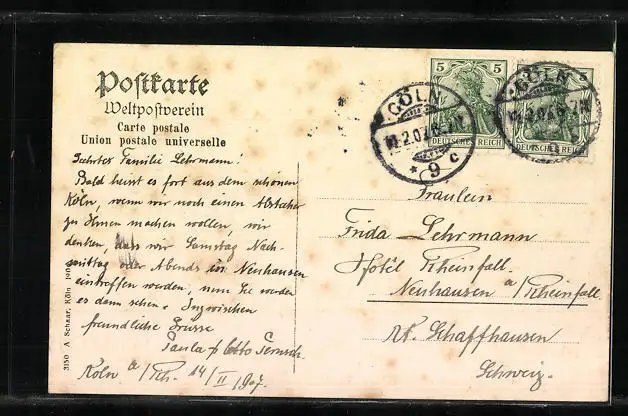 Postkarte
Weltpostverein
Carte postale
Union postale universelle
5 5
DEUTSCHES REICH
5
DEUTSCHES REICH
CÖLN
9 c
CÖLN
9
Familie Lehrmann!
Bald heisst es fort aus dem schönen
Köln, wenn wir noch einen Abstecher
zu Ihnen machen wollen, wir
denken, dass wir Samstag Nach-
mittag oder Abends in Neuhausen
eintreffen werden, nun Sie werden
es dann sehen. Inzwischen
freundliche Grüsse
Paula & Otto
Köln a/Rh. 14/II 07.
Fräulein
Frida Lehrmann
Hôtel Rheinfall
Neuhausen a/Rheinfall
Kt. Schaffhausen
Schweiz.
3150 A Schaar, Köln